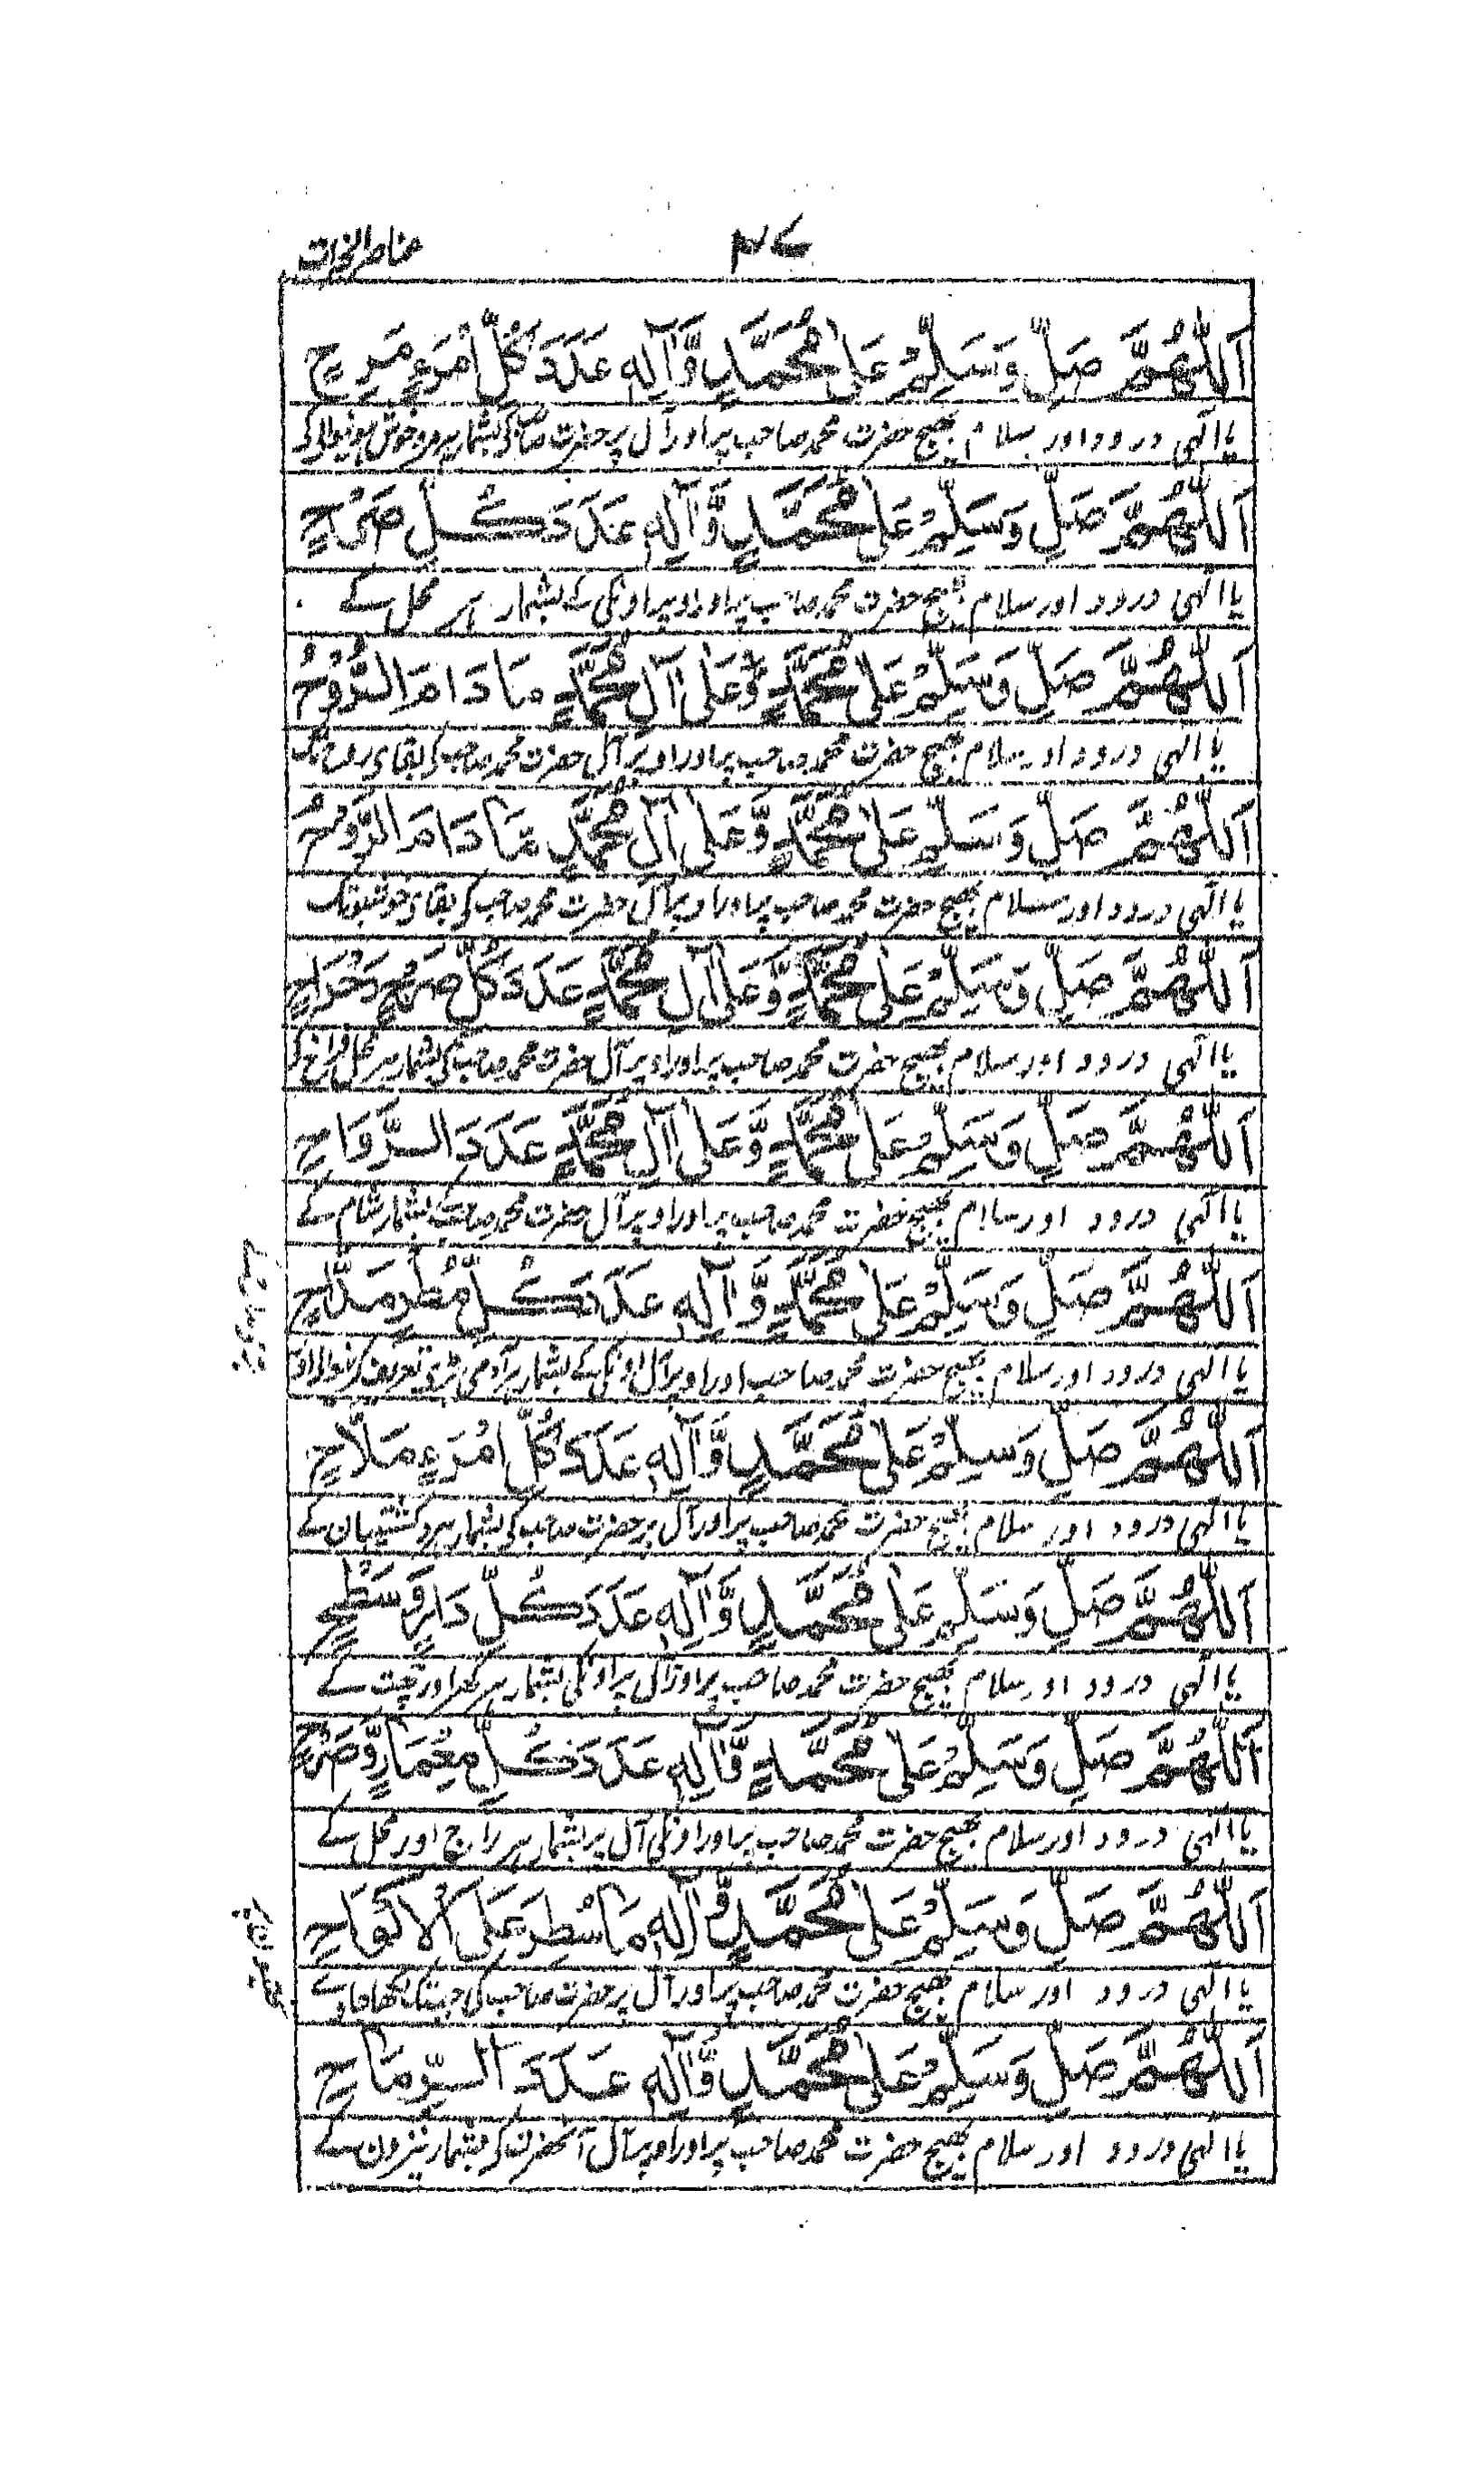 ۴۷
اَللّٰهُمَّ صَلِّ وَسَلِّمْ عَلٰى مُحَمَّدٍ وَّاٰلِهٖ عَدَدَ كُلِّ امْرَءٍ مَرِحٍ
یا الہی درود اور سلام بھیج حضرت محمد صاحب پر اور آل پر حضرت
اَللّٰهُمَّ صَلِّ وَسَلِّمْ عَلٰى مُحَمَّدٍ وَّاٰلِهٖ عَدَدَ كُلِّ
یا الہی درود اور سلام بھیج حضرت محمد صاحب پر اور اوپر اونکی کے بشمار ہر محل کے
اَللّٰهُمَّ صَلِّ وَسَلِّمْ عَلٰى مُحَمَّدٍ وَّعَلٰى اٰلِ مُحَمَّدٍ مَا دَامَ الرُّوْحُ
یا الہی درود اور سلام بھیج حضرت محمد صاحب پر اور اوپر آل حضرت محمد صاحب کی بقای روح تک
اَللّٰهُمَّ صَلِّ وَسَلِّمْ عَلٰى مُحَمَّدٍ وَّعَلٰى اٰلِ مُحَمَّدٍ مَّا دَامَ الرَّوْحُ
یا الہی درود اور سلام بھیج حضرت محمد صاحب پر اور اوپر آل حضرت محمد صاحب کی بقای خوشبو تک
اَللّٰهُمَّ صَلِّ وَسَلِّمْ عَلٰى مُحَمَّدٍ وَّعَلٰى اٰلِ مُحَمَّدٍ عَدَدَ كُلِّ
یا الہی درود اور سلام بھیج حضرت محمد صاحب پر اور اوپر آل حضرت محمد صاحب کی بشمار ہر محل
اَللّٰهُمَّ صَلِّ وَسَلِّمْ عَلٰى مُحَمَّدٍ وَّعَلٰى اٰلِ مُحَمَّدٍ عَدَدَ الرَّوَاحِ
یا الہی درود اور سلام بھیج حضرت محمد صاحب پر اور اوپر آل حضرت محمد صاحب کے بشمار شام کے
اَللّٰهُمَّ صَلِّ وَسَلِّمْ عَلٰى مُحَمَّدٍ وَّاٰلِهٖ عَدَدَ كُلِّ مُطْرٍ مَدَّاحٍ
یا الہی درود اور سلام بھیج حضرت محمد صاحب اور اوپر آل اونکی کے بشمار ہر آدمی
اَللّٰهُمَّ صَلِّ وَسَلِّمْ عَلٰى مُحَمَّدٍ وَّاٰلِهٖ عَدَدَ كُلِّ امْرَءٍ مَلَّاحٍ
یا الہی درود اور سلام بھیج حضرت محمد صاحب پر اور آل پر حضرت صاحب کی بشمار ہر مرد کشتیبان کے
اَللّٰهُمَّ صَلِّ وَسَلِّمْ عَلٰى مُحَمَّدٍ وَّاٰلِهٖ عَدَدَ كُلِّ دَارٍ وَّسَطْحٍ
یا الہی درود اور سلام بھیج حضرت محمد صاحب پر اور آل پر اونکی بشمار ہر گھر اور چھت کے
اَللّٰهُمَّ صَلِّ وَسَلِّمْ عَلٰى مُحَمَّدٍ وَّاٰلِهٖ عَدَدَ كُلِّ مِعْمَارٍ وَّصَرْحٍ
یا الہی درود اور سلام بھیج حضرت محمد صاحب پر اور اونکی آل پر بشمار ہر راج اور محل کے
اَللّٰهُمَّ صَلِّ وَسَلِّمْ عَلٰى مُحَمَّدٍ وَّاٰلِهٖ مَا سُطِرَ عَلَى الْاَلْوَاحِ
یا الہی درود اور سلام بھیج حضرت محمد صاحب پر اور آل پر حضرت صاحب کی جبتک لکھا جاوے
اَللّٰهُمَّ صَلِّ وَسَلِّمْ عَلٰى مُحَمَّدٍ وَّاٰلِهٖ عَدَدَ الرِّمَاحِ
یا الہی درود اور سلام بھیج حضرت محمد صاحب پر اور اوپر آل آنحضرت کے بشمار نیزون کے